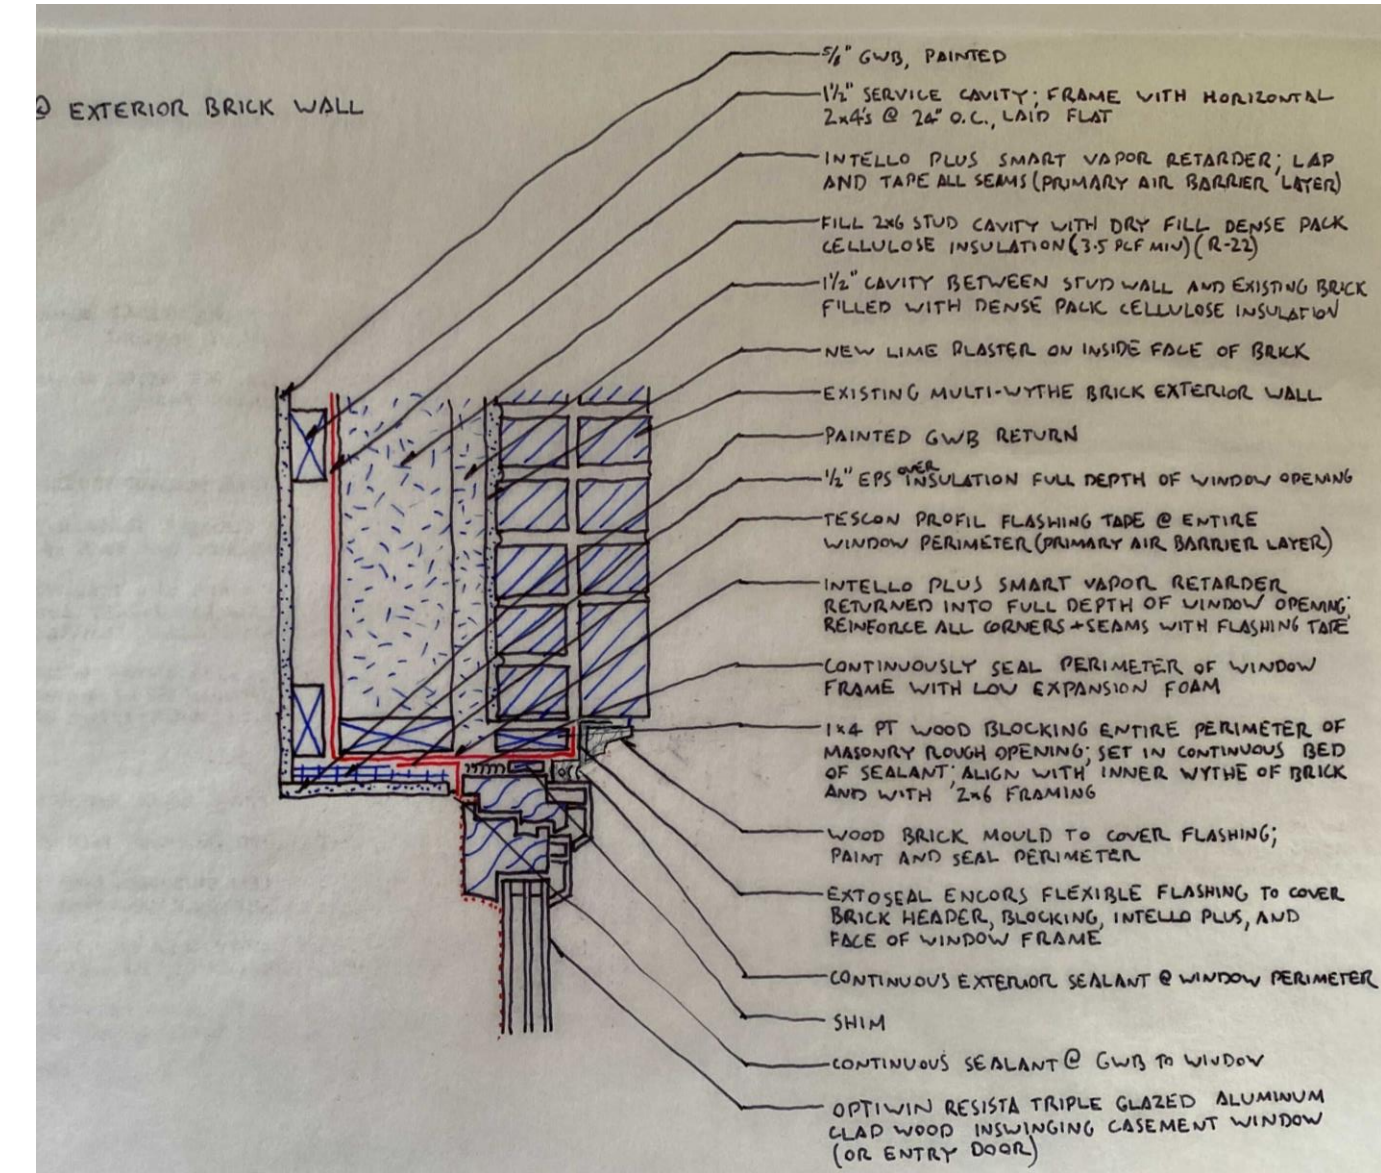 @ EXTERIOR BRICK WALL
5/8" GWB, PAINTED
1½" SERVICE CAVITY; FRAME WITH HORIZONTAL
2x4's @ 24" O.C., LAID FLAT
INTELLO PLUS SMART VAPOR RETARDER; LAP
AND TAPE ALL SEAMS (PRIMARY AIR BARRIER LAYER)
FILL 2x6 STUD CAVITY WITH DRY FILL DENSE PACK
CELLULOSE INSULATION (3.5 PCF MIN) (R-22)
1½" CAVITY BETWEEN STUD WALL AND EXISTING BRICK
FILLED WITH DENSE PACK CELLULOSE INSULATION
NEW LIME PLASTER ON INSIDE FACE OF BRICK
EXISTING MULTI-WYTHE BRICK EXTERIOR WALL
PAINTED GWB RETURN
½" EPS OVER INSULATION FULL DEPTH OF WINDOW OPENING
TESCON PROFIL FLASHING TAPE @ ENTIRE
WINDOW PERIMETER (PRIMARY AIR BARRIER LAYER)
INTELLO PLUS SMART VAPOR RETARDER
RETURNED INTO FULL DEPTH OF WINDOW OPENING;
REINFORCE ALL CORNERS + SEAMS WITH FLASHING TAPE
CONTINUOUSLY SEAL PERIMETER OF WINDOW
FRAME WITH LOW EXPANSION FOAM
1x4 PT WOOD BLOCKING ENTIRE PERIMETER OF
MASONRY ROUGH OPENING; SET IN CONTINUOUS BED
OF SEALANT; ALIGN WITH INNER WYTHE OF BRICK
AND WITH 2x6 FRAMING
WOOD BRICK MOULD TO COVER FLASHING;
PAINT AND SEAL PERIMETER
EXTOSEAL ENCORS FLEXIBLE FLASHING TO COVER
BRICK HEADER, BLOCKING, INTELLO PLUS, AND
FACE OF WINDOW FRAME
CONTINUOUS EXTERIOR SEALANT @ WINDOW PERIMETER
SHIM
CONTINUOUS SEALANT @ GWB TO WINDOW
OPTIWIN RESISTA TRIPLE GLAZED ALUMINUM
CLAD WOOD INSWINGING CASEMENT WINDOW
(OR ENTRY DOOR)